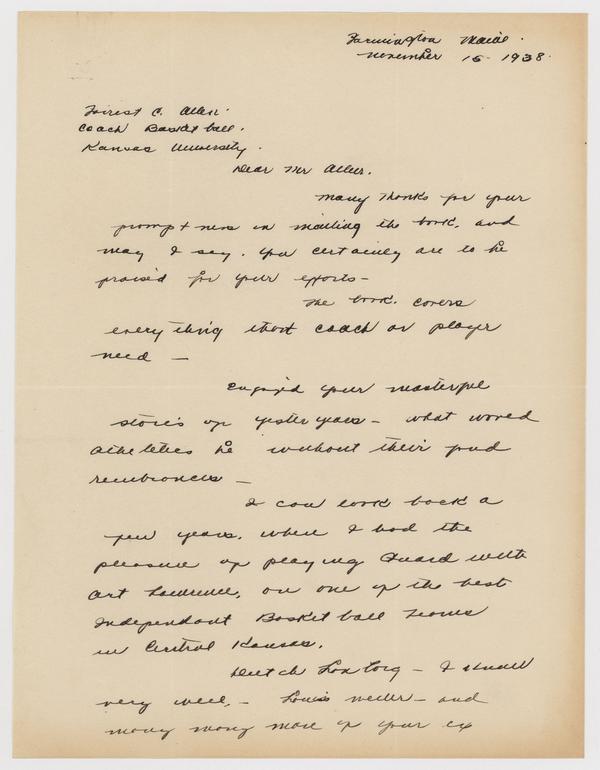 Farmington Maine.
November 15 1938.
Forrest C. Allen.
Coach Basket ball.
Kansas University.
Dear Mr Allen.
Many thanks for your
prompt ness in mailing the book, and
may I say. You certainly are to be
praised for your efforts—
The book. covers
every thing that coach or player
need —
Enjoyed your masterful
stories of yester years — what would
Athletics be without their fond
—
I can look back a
few years, when I had the
pleasure of playing Guard with
Art Lawrence, on one of the best
Independant Basket ball Teams
in Central Kansas.
Dutch — I know
very well, — Louis — and
many many more of your ex